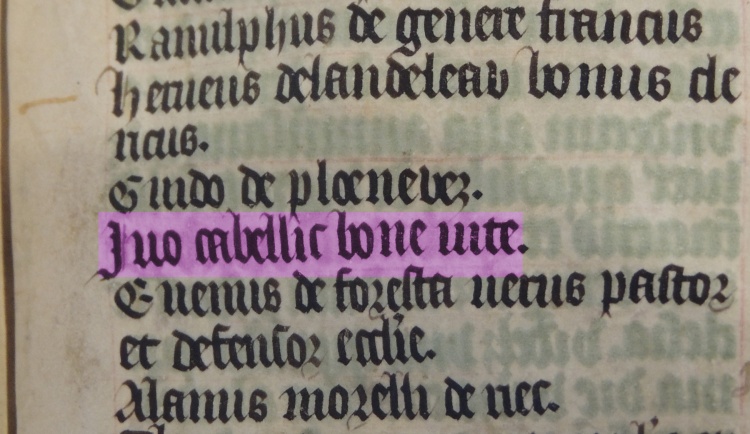 Ranulphus de genere francus
herueus delandeleau bonus cle
ricus.
Guido de ploeneuez.
Juo cabellic bone uite.
Euenus de foresta uerus pastor
et defensor ecclie.
Alanus morelli de nec.